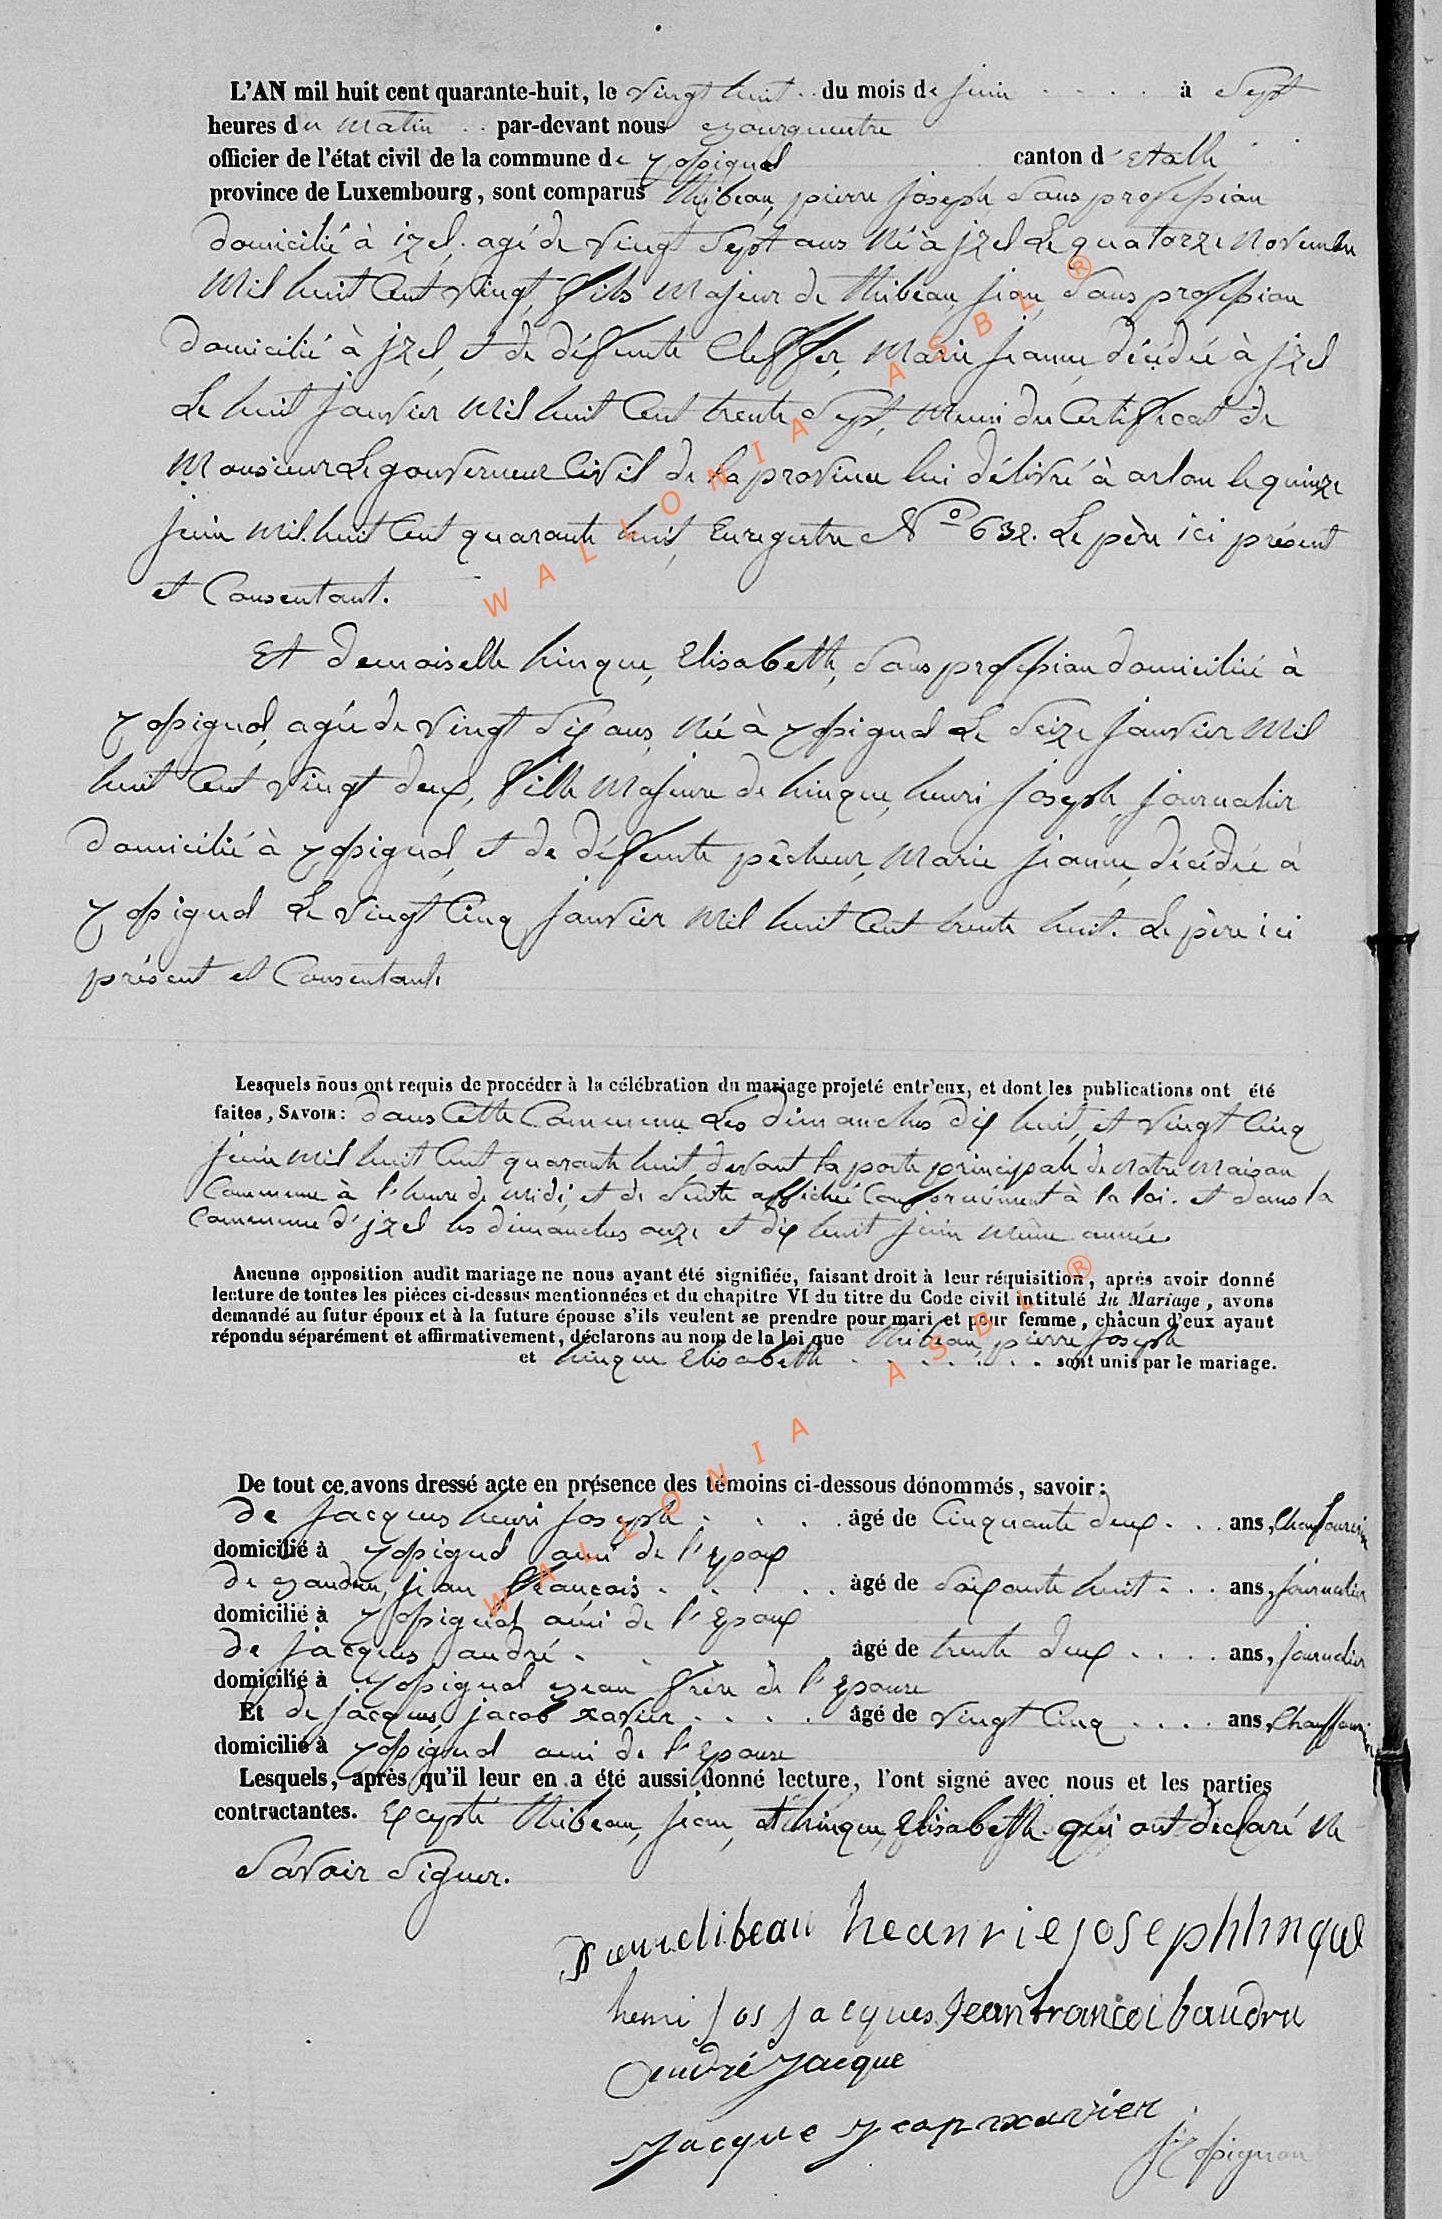 L'AN mil huit cent quarante-huit, le vingt huit .. du mois de juin . . . . à Sept
heures du matin .. par-devant nous Bourgmestre
officier de l'état civil de la commune de canton d'Etalle
province de Luxembourg, sont comparus thibeau, pierre joseph, Sans profession
domicilié à izel, agé de vingt Sept ans né à jzel Le quatorze Novembre
Mil huit Cent vingt, fils Majeur de thibeau, jean, Sans profession
domicilié à jzel, et de défunte Cleffer, Marie jeanne, décédée à jzel
Le huit janvier Mil huit Cent trente Sept, Muni du Certificat de
Monsieur Le gouverneur Civil de la province lui délivré à arlon le quinze
juin mil huit Cent quarante huit, Enregistré N° 632. Le père ici présent
et Consentant.
Et demoiselle hinque, Elisabeth, Sans profession domiciliée à
agée de vingt Six ans, Née à Le Seize janvier Mil
huit Cent vingt deux, fille Majeure de hinque, henri joseph, journalier
domicilié à et de défunte pêcheur, Marie jeanne, décédée à
Le vingt Cinq janvier Mil huit Cent trente huit. Le père ici
présent et Consentant.
Lesquels nous ont requis de procéder à la célébration du mariage projeté entr'eux, et dont les publications ont été
faites, SAVOIR : dans Cette Commune Les dimanches dix huit, et vingt Cinq
juin mil huit Cent quarante huit, devant la porte principale de notre Maison
Commune à l'heure de midi, et de Suite affiché Conformément à la loi. et dans la
Commune d'jzel les dimanches onze et dix huit juin même année.
Aucune opposition audit mariage ne nous ayant été signifiée, faisant droit à leur réquisition, après avoir donné
lecture de toutes les pièces ci-dessus mentionnées et du chapitre VI du titre du Code civil intitulé du Mariage, avons
demandé au futur époux et à la future épouse s'ils veulent se prendre pour mari et pour femme, chacun d'eux ayant
répondu séparément et affirmativement, déclarons au nom de la loi que thibeau, pierre joseph
et hinque Elisabeth . . . . . . . sont unis par le mariage.
De tout ce avons dressé acte en présence des témoins ci-dessous dénommés, savoir :
de jacques henri joseph . . . . âgé de Cinquante deux . . . ans, Chaufournier
domicilié à ami de l'Epoux
de Baudru, jean françois . . . . . âgé de Soixante huit . . . ans, journalier
domicilié à ami de l'Epoux
de jacques, andré . . . . âgé de trente deux . . . . ans, journalier
domicilié à Beau frère de l'Epouse
Et de jacques, jacob xavier . . . . âgé de vingt Cinq . . . . ans, Chauffournier
domicilié à ami de l'Epouse
Lesquels, après qu'il leur en a été aussi donné lecture, l'ont signé avec nous et les parties
contractantes. Excepté thibeau, jean, et hinque, Elisabeth qui ont déclaré ne
Savoir Signer.
heanrie joseph hinque
henri jos jacques Jean francoi baudru
andré Jacque
Jacque xavier
WALLONIA ASBL ®
WALLONIA ASBL ®